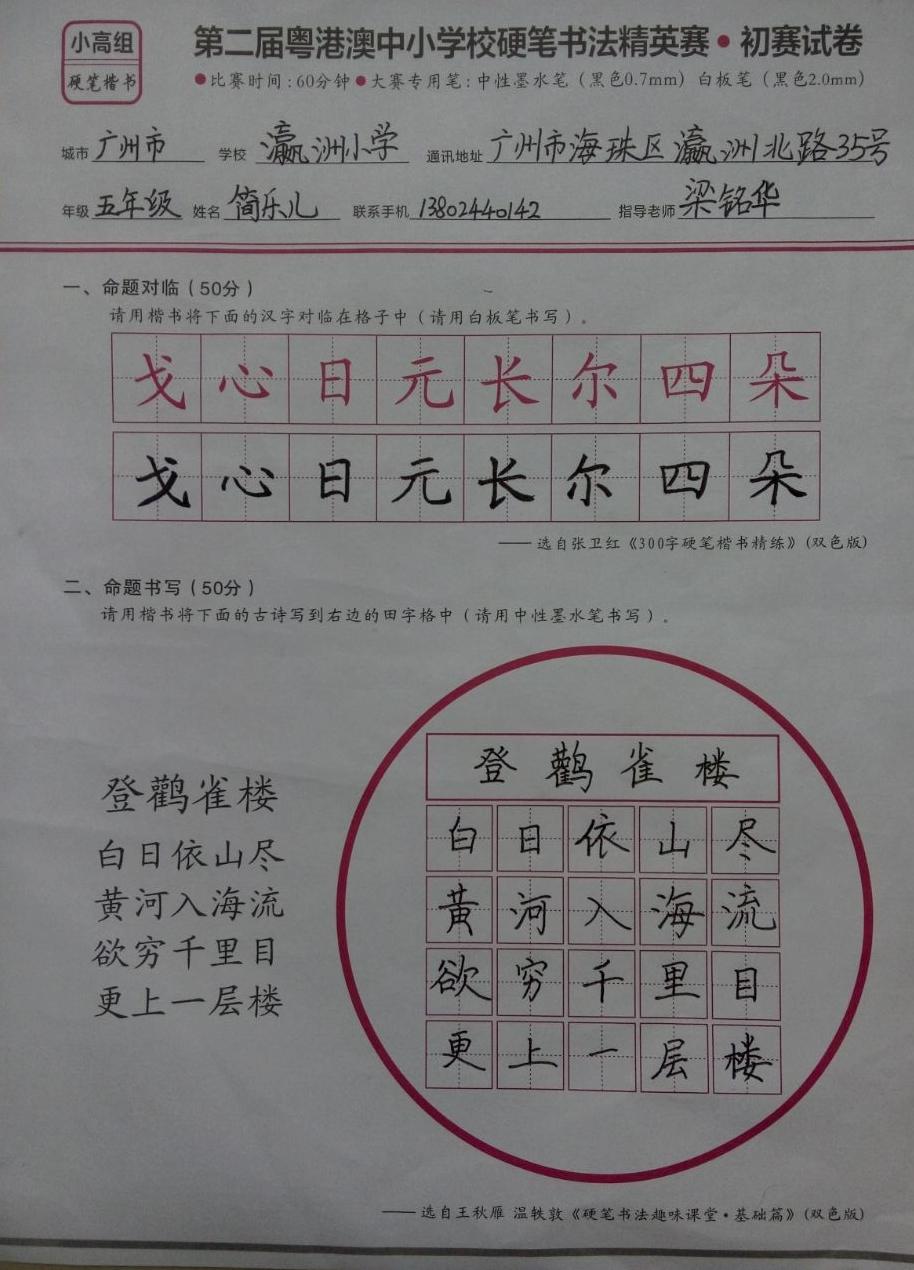 小高组
硬笔楷书
第二届粤港澳中小学校硬笔书法精英赛•初赛试卷
●比赛时间:60分钟●大赛专用笔:中性墨水笔(黑色0.7mm) 白板笔(黑色2.0mm)
城市 广州市 学校 瀛洲小学 通讯地址 广州市海珠区瀛洲北路35号
年级 五年级 姓名 简乐儿 联系手机 13802440142 指导老师 梁铭华
一、命题对临(50分)
请用楷书将下面的汉字对临在格子中(请用白板笔书写)。
戈心日元长尔四朵
戈心日元长尔四朵
—— 选自张卫红《300字硬笔楷书精练》(双色版)
二、命题书写(50分)
请用楷书将下面的古诗写到右边的田字格中(请用中性墨水笔书写)。
登鹳雀楼
白日依山尽
黄河入海流
欲穷千里目
更上一层楼
登鹳雀楼
白日依山尽
黄河入海流
欲穷千里目
更上一层楼
—— 选自王秋雁 温轶敦《硬笔书法趣味课堂·基础篇》(双色版)